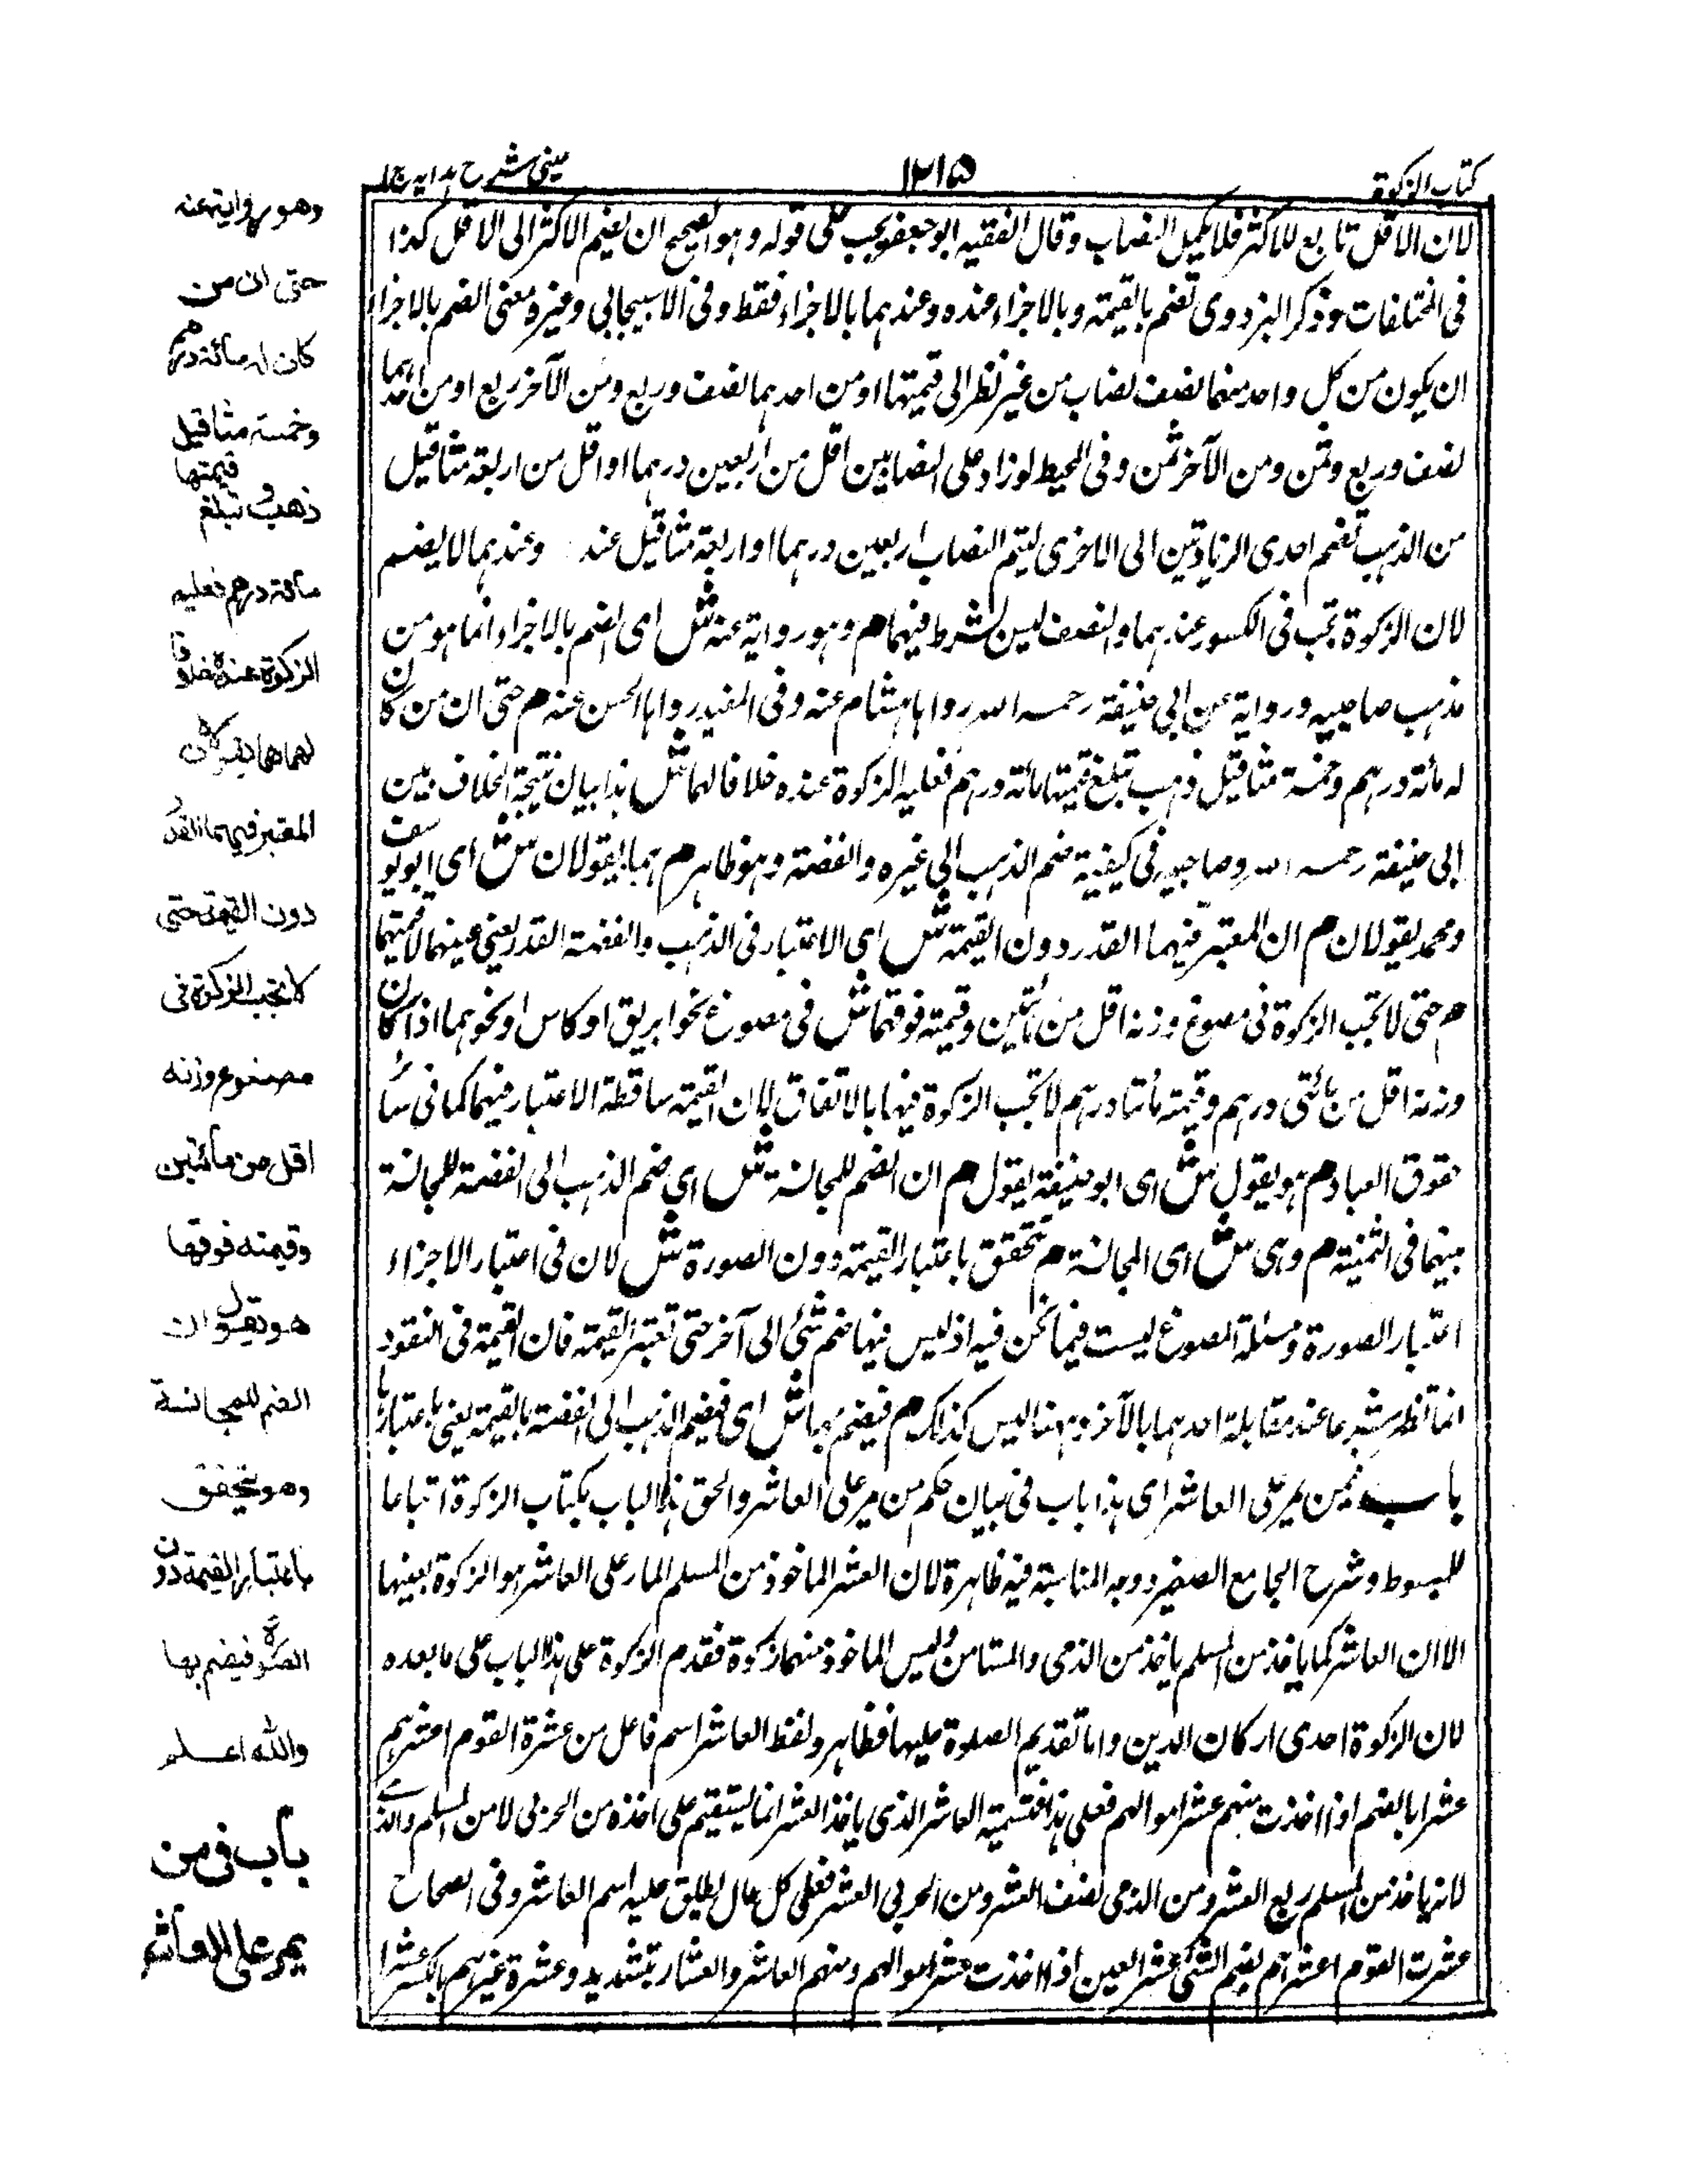 كتاب الزكوة
١٢١٥
عينى شرح هدايه ج ا
لان الاقل تابع للاكثر فلا يكمل النصاب وقال الفقيه ابو جعفر يجب على قوله وهو الصحيح ان يضم الاكثر الى الاقل كذا
فى المختلفات وذكر البزدوى تضم بالقيمة وبالاجزاء عنده وعندهما بالاجزاء فقط وفى الاسبيجابى وغيره معنى الضم بالاجزاء
ان يكون من كل واحد منهما نصف نصاب من غير نظر الى قيمتها او من احدهما نصف وربع ومن الآخر ربع او من احدهما
نصف وربع وثمن ومن الآخر ثمن وفى المحيط لو زاد على النصابين اقل من اربعين درهما او اقل من اربعة مثاقيل
من الذهب تضم احدى الزيادتين الى الاخرى ليتم النصاب اربعين درهما او اربعة مثاقيل عند وعندهما لا يضم
لان الزكوة تجب فى الكسور عندهما والنصف ليس بشرط فيهما م وهو رواية عنه ش اى الضم بالاجزاء انما هو من
مذهب صاحبيه ورواية عن ابى حنيفة رحمه الله رواها هشام عنه وفى المفيد رواها الحسن عنه م حتى ان من كان
له مائة درهم وخمسة مثاقيل ذهب تبلغ قيمتها مائة درهم فعليه الزكوة عنده خلافا لهما ش هذا بيان نتيجة الخلاف بين
ابى حنيفة رحمه الله وصاحبيه فى كيفية ضم الذهب الى غيره والفضة وهو ظاهر م هما يقولان ش اى ابو يوسف
ومحمد يقولان م ان المعتبر فيهما القدر دون القيمة ش اى الاعتبار فى الذهب والفضة القدر يعنى عينهما لا قيمتهما
م حتى لا تجب الزكوة فى مصوغ وزنه اقل من مأتين وقيمته فوقها ش فى مصوغ نحو ابريق او كاس او نحوهما اذا كان
وزنه اقل من مائتى درهم وقيمته مائتا درهم لا تجب الزكوة فيها بالاتفاق لان القيمة ساقطة الاعتبار فيهما كما فى سائر
حقوق العباد م هو يقول ش اى ابو حنيفة يقول م ان الضم للمجانسة ش اى ضم الذهب الى الفضة للمجانسة
بينهما فى الثمنية م وهى ش اى المجانسة م تتحقق باعتبار القيمة دون الصورة ش لان فى اعتبار الاجزاء
اعتبار الصورة ومسئلة المصوغ ليست فيما نحن فيه اذ ليس فيها ضم شئ الى آخر حتى تعتبر القيمة فان القيمة فى النقود
انما تظهر شرعا عند مقابلة احدهما بالآخر وههنا ليس كذلك م فيضم بها ش اى فيضم الذهب الى الفضة بالقيمة يعنى باعتبارها
باب فيمن يمر على العاشر اى هذا باب فى بيان حكم من مر على العاشر والحق هذا الباب بكتاب الزكوة اتباعا
للمبسوط وشرح الجامع الصغير ووجه المناسبة فيه ظاهرة لان العشر الماخوذ من المسلم المار على العاشر هو الزكوة بعينها
الا ان العاشر كما ياخذ من المسلم ياخذ من الذمى والمستامن وليس الماخوذ منهما زكوة فقدم الزكوة على هذا الباب على ما بعده
لان الزكوة احدى اركان الدين واما تقديم الصلوة عليها فظاهر ولفظ العاشر اسم فاعل من عشرة القوم اعشرهم
عشرا بالضم اذا اخذت منهم عشر اموالهم فعلى هذا فتسمية العاشر الذى ياخذ العشر انما يستقيم على اخذه من الحربى لا من المسلم والذمى
لانه ياخذ من المسلم ربع العشر ومن الذمى نصف العشر ومن الحربى العشر فعلى كل حال يطلق عليه اسم العاشر وفى الصحاح
عشرت القوم اعشرهم بضم الشئ عشر العين اذا اخذت عشر اموالهم ومنهم العاشر والعشار بتشديد وعشرة غيرهم بالكسر عشرا
وهو رواية عنه
حتى ان من
كان له مائة درهم
وخمسة مثاقيل
ذهب وتبلغ قيمتها
مائة درهم فعليه
الزكوة عنده خلافا
لهما هما يقولان
المعتبر فيهما القدر
دون القيمة حتى
لا تجب الزكوة فى
مصنوع وزنه
اقل من مائتين
وقيمته فوقها
هو يقول ان
الضم للمجانسة
وهو يتحقق
باعتبار القيمة دون
الصورة فيضم بها
والله اعلم
باب فى من
يمر على العاشر